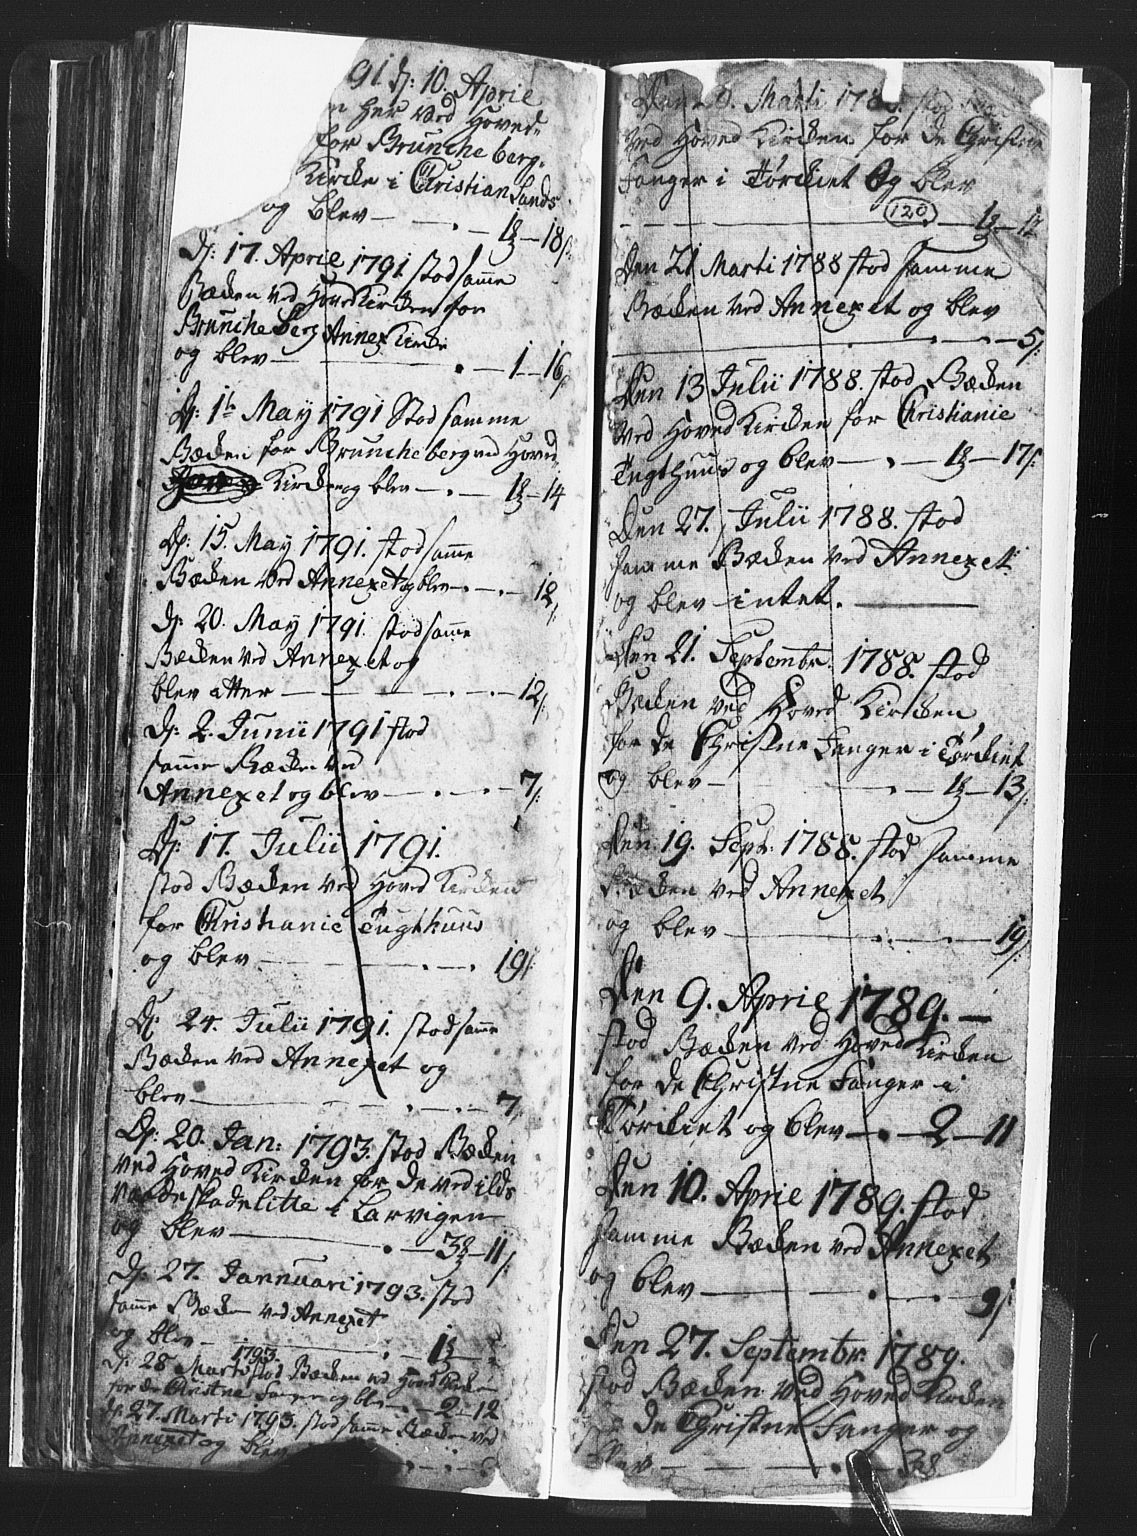 91 d: 10. Aprie
n her ved Hoved=
for Brunche berg=
Kirke i Christian Sands
og blev — 1 — 18
D: 17. Aprie 1791 stod samme
Bæcken ved Hoved Kircken for
Brunche berg Annex Kircke
og blev — 1 — 16
D: 1te May 1791 Stod samme
Bæcken for Brunche berg ved Hoved=
Kircken og blev — 1 — 14
D: 15. May 1791. stod samme
Bæcken ved Annexet og blev — 12
D: 20. May 1791. stod samme
Bæcken ved Annexet og
blev atter — 12
D: 2. Junii 1791 stod
samme Bæcken ved
Annexet og blev — 7
D: 17. Julii 1791.
stod Bæcken ved Hoved Kircken
for Christianie Tugthuus
og blev — 19
D: 24. Julii 1791. stod samme
Bæcken ved Annexet og
blev — 7
D: 20. Jan: 1793. stod Bæcken
ved Hoved Kircken for de ved ilds
vaade skadelitte i Larvigen
og blev — 3 — 11
D: 27. Jannuari 1793. stod
samme Bæcken ved Annexet
og blev — 1
1793.
D: 28 Marti stod Bæcken ved Hoved Kircken
for de Christne Fanger og blev — 2 — 12
D: 27. Marti 1793. stod samme Bæcken ved
Annexet og blev
Marti 178 stod
ved Hoved Kircken for de Christne
Fanger i Tørckiet Og blev
(120) 1 — 12
Den 21 Marti 1788 stod samme
Bæcken ved Annexet og blev
— 5
Den 13 Julii 1788. stod Bæcken
ved Hoved Kircken for Christianie
Tugthuus og blev — 1 — 17
Den 27. Julii 1788. stod
samme Bæcken ved Annexet
og blev intet.
Den 21. Septembr. 1788. stod
Bæcken ved Hoved Kircken
for de Christne Fanger i Tørckiet
og blev — 1 — 13
Den 19. Sept. 1788. stod samme
Bæcken ved Annexet
og blev — 19
Den 9. Aprie 1789. —
stod Bæcken ved Hoved Kircken
for de Christne Fanger i
Tørckiet og blev — 2 — 11
Den 10. Aprie 1789. stod
samme Bæcken ved Annexet
og blev — 9
Den 27. Septembr. 1789.
stod Bæcken ved Hoved Kircken
de Christne Fanger og
blev —